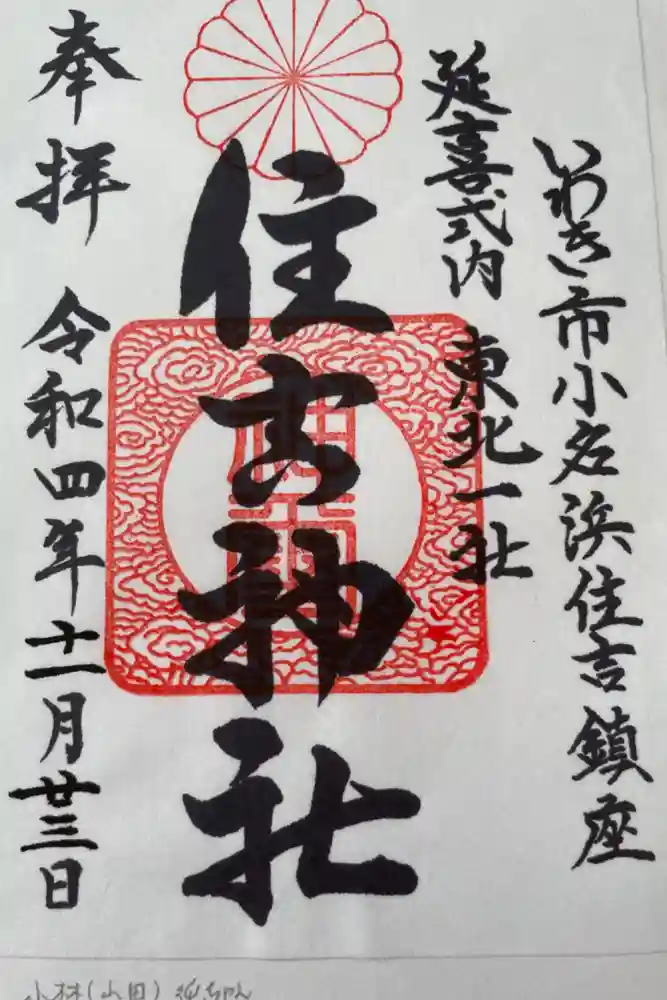 いわき市小名浜住吉鎮座
延喜式内 東北一社
住吉神社
奉拝 令和四年十一月廿三日